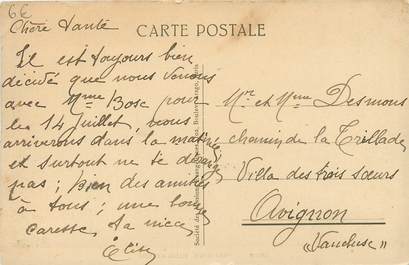 6€
CARTE POSTALE
Chère Tante
Il est toujours bien
décidé que nous venons
avec Mme Bosc pour
le 14 Juillet, nous
arriverons dans la matinée
et surtout ne te dérange
pas ; bien des amitiés
à tous ; une bonne
caresse, ta nièce
Élise
Mr et Mme Desmons
chemin de la Trillade
Villa des trois sœurs
Avignon
"Vaucluse"